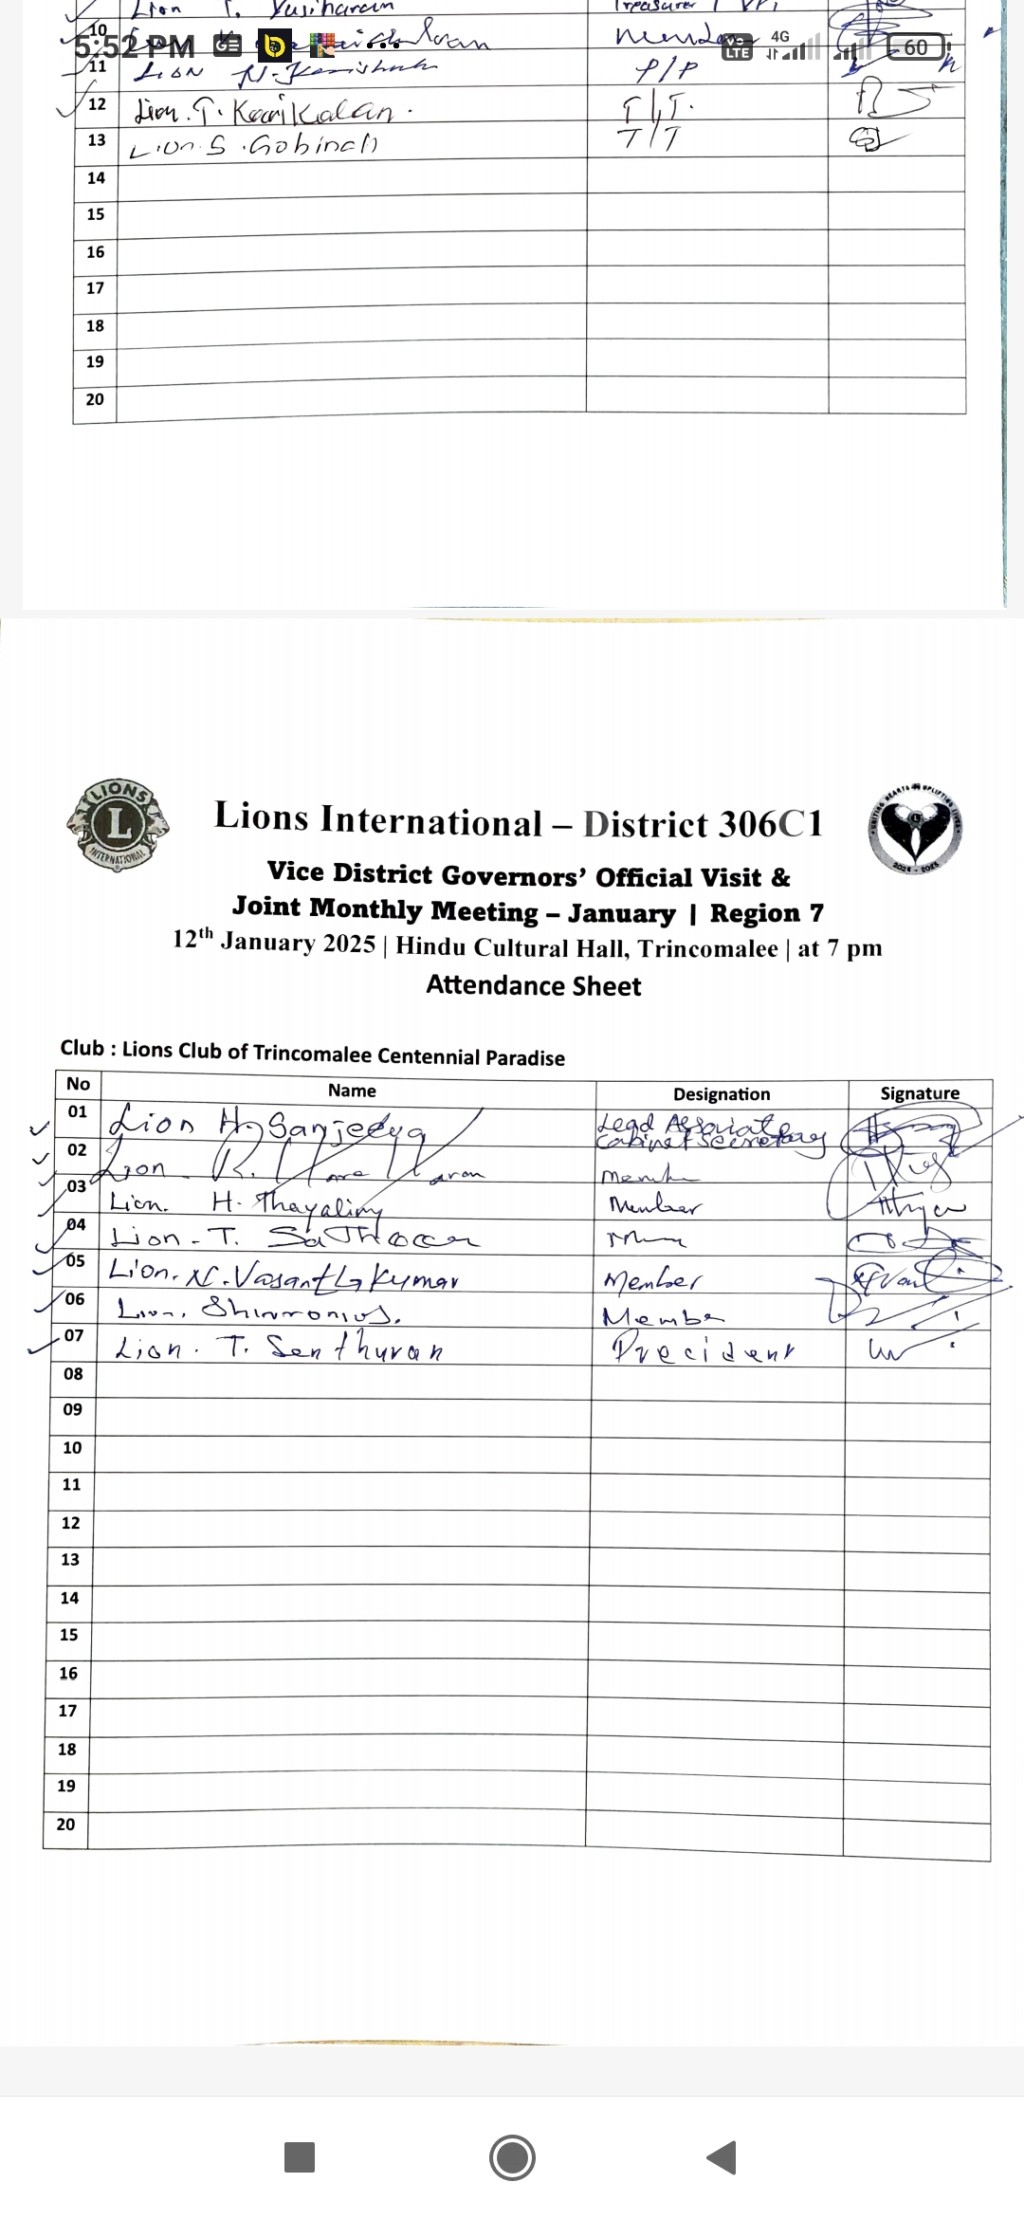 Lion T. Yusiharan Treasurer
10
5:52 PM GE b VoLTE 4G 60
11 Lion N.
12 Lion. T. Karikalan. T/T.
13 Lion S. Gobinath T/T
14
15
16
17
18
19
20
LIONS L INTERNATIONAL
Lions International – District 306C1
UNITING HEARTS UPLIFTING LIVES 2024 - 2025
Vice District Governors’ Official Visit &
Joint Monthly Meeting – January | Region 7
12th January 2025 | Hindu Cultural Hall, Trincomalee | at 7 pm
Attendance Sheet
Club : Lions Club of Trincomalee Centennial Paradise
No Name Designation Signature
01 Lion H. Sanjeeya Lead Associat Cabinet Secretary
02 Lion R.
03 Lion. H. Thayaliny Member
04 Lion - T.
05 Lion. N. Vasanthakumar Member
06 Lion. Member
07 Lion. T. Senthuran Precident
08
09
10
11
12
13
14
15
16
17
18
19
20